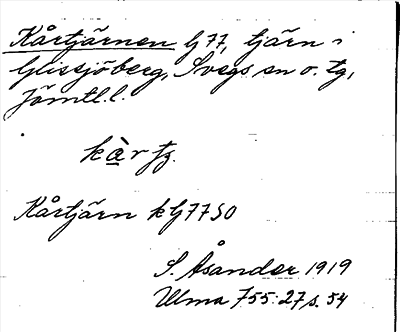 Kårtjärnen G 77, tjärn i
Glissjöberg, Svegs sn o. tg,
Jämtl. l.
kàrtz.
Kårtjärn k G 77 SO
S. Åsander 1919
Ulma 755:27 s. 54